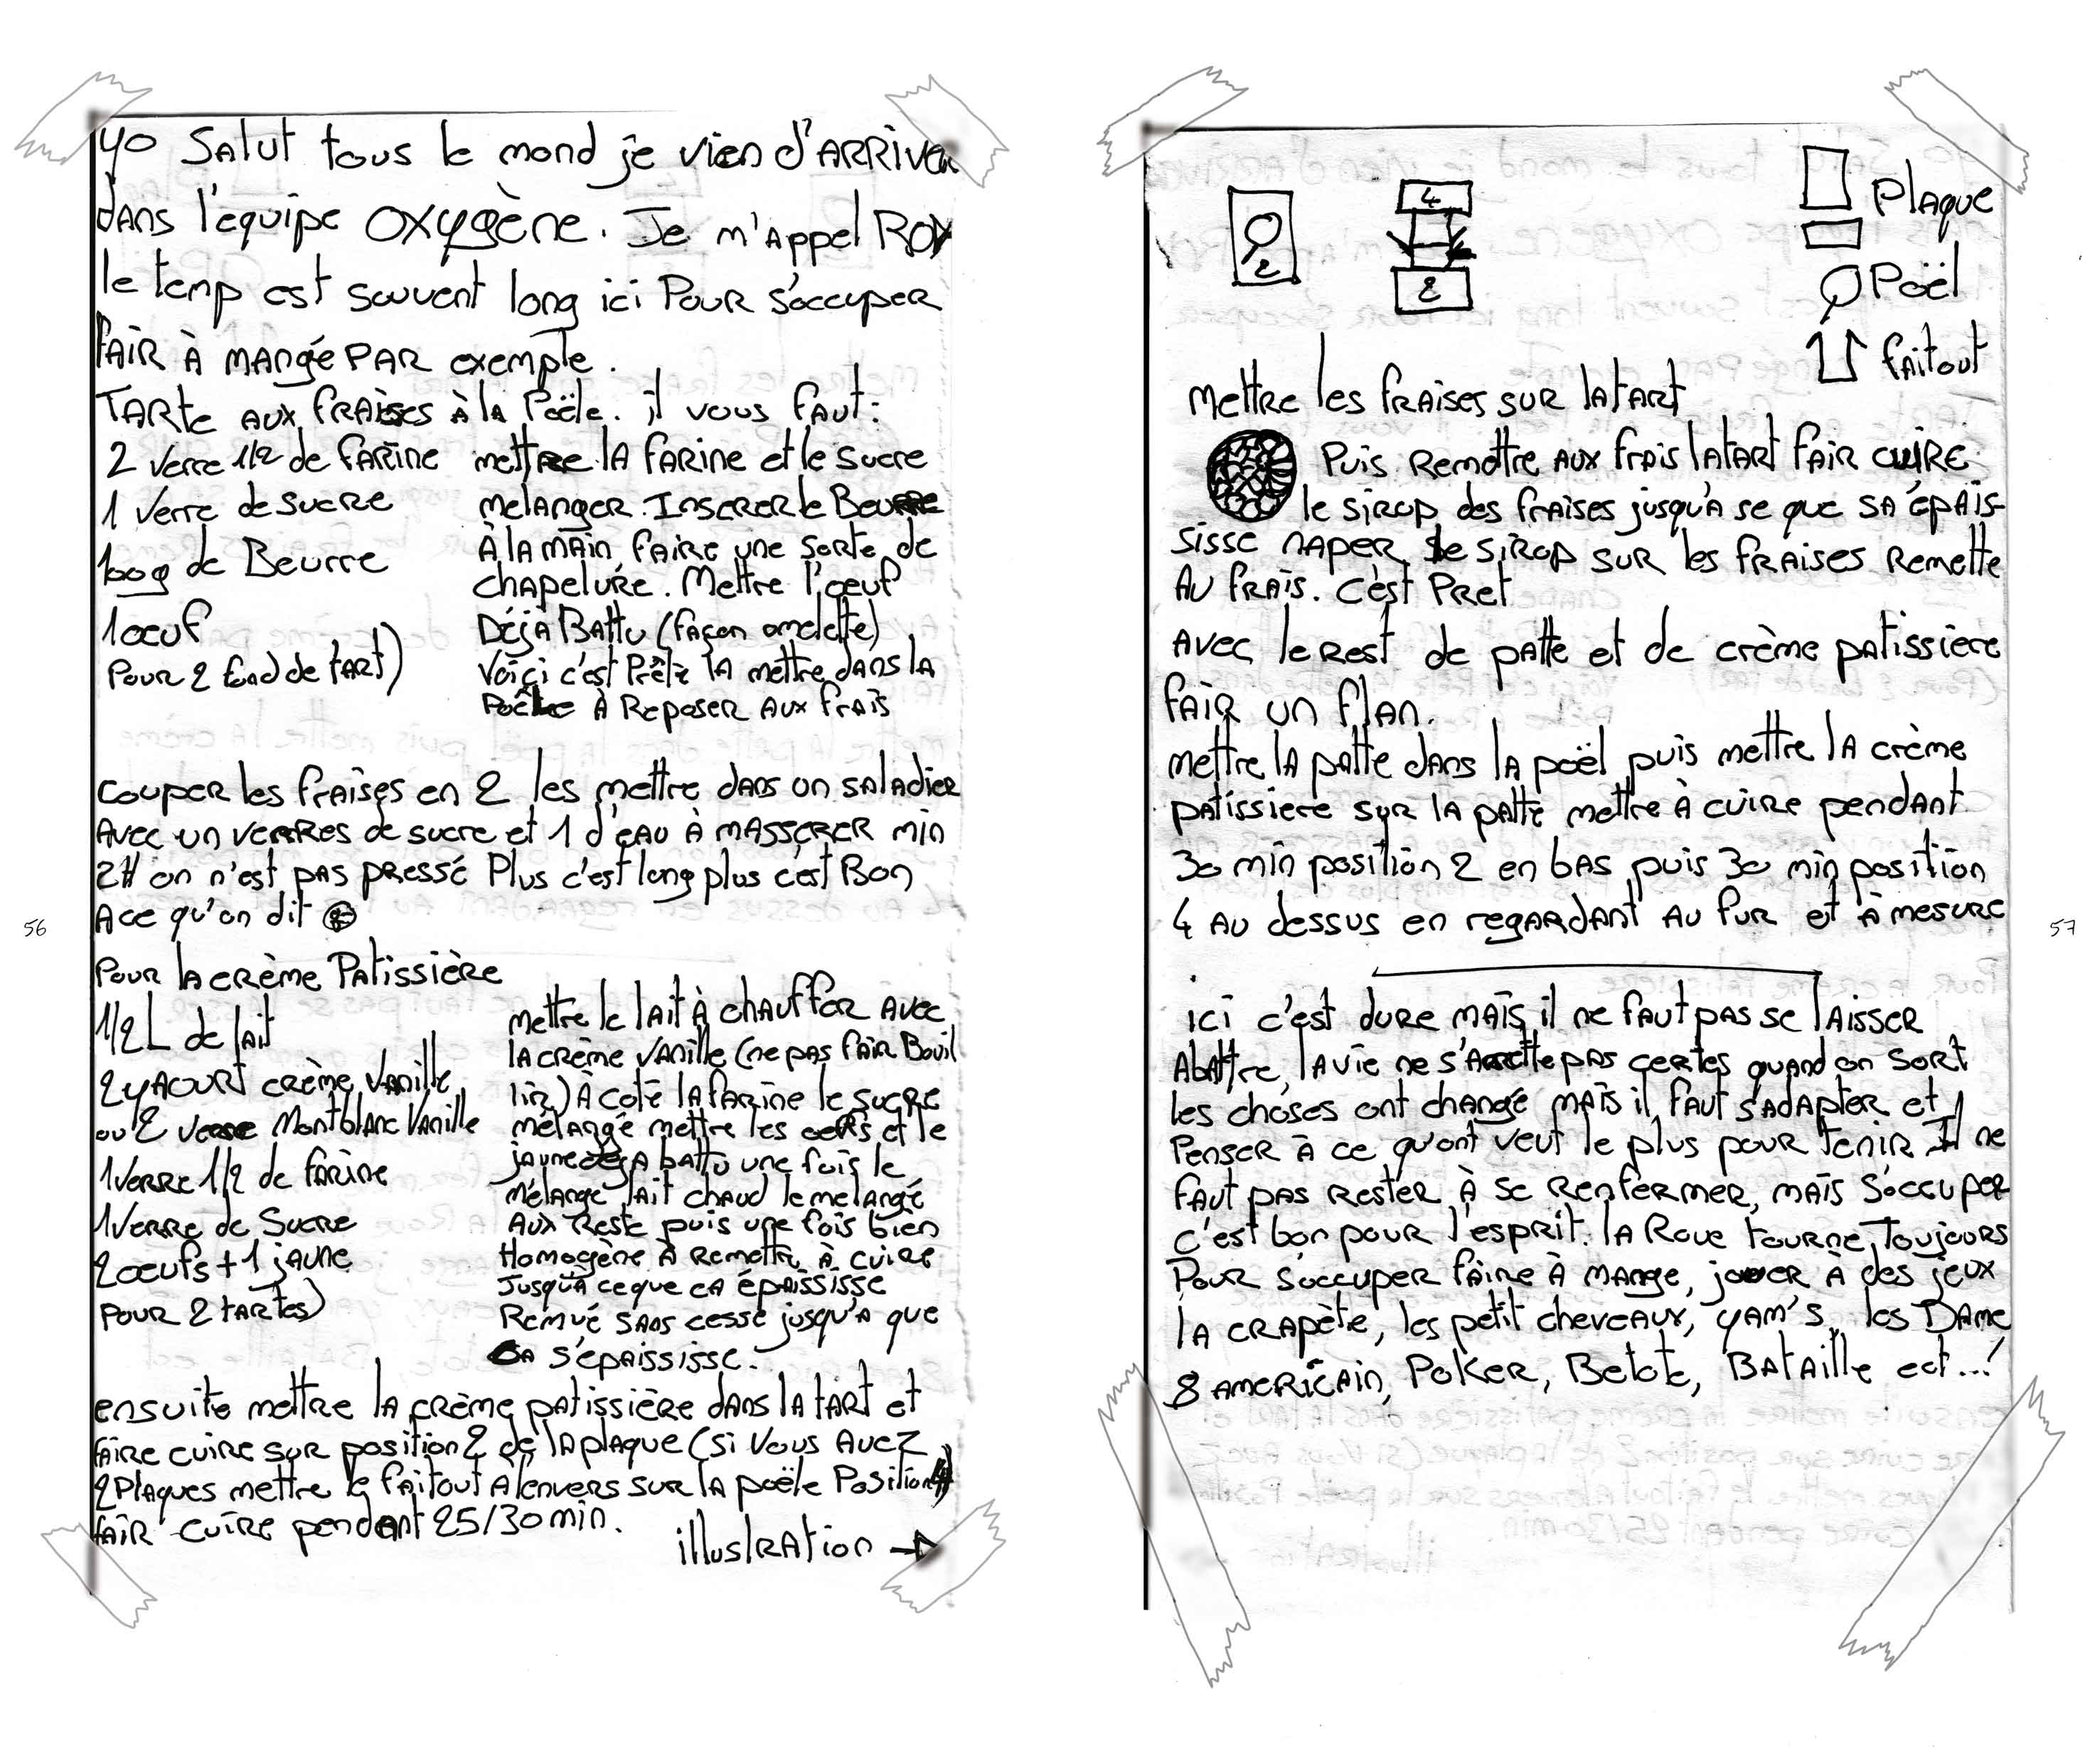 yo Salut tous le mond je vien d'ARRiver
dans l'équipe OXYgène. Je m'appel ROY
le temp est souvent long ici Pour s'occuper
fair à mangé par exemple.
Tarte aux fraises à la Poële. il vous faut:
2 verre 1/2 de farine
1 verre de sucre
100g de Beurre
1 oeuf
Pour 2 fond de tart)
mettre la farine et le sucre
melanger. Inserer le Beurre
à la main faire une sorte de
chapelure. Mettre l'oeuf
Déjà Battu (façon omelette)
Voiçi c'est Prête la mettre dans la
Poêle à Reposer aux frais
couper les fraises en 2 les mettre dans un saladier
Avec un verres de sucre et 1 d'eau à masserer min
2H on n'est pas pressé Plus c'est long plus c'est Bon
A ce qu'on dit
Pour la crème Patissière
1/2 L de lait
2 yaourt crème Vanille
ou 2 verre Montblanc Vanille
1 verre 1/2 de farine
1 verre de Sucre
2 oeufs + 1 jaune
Pour 2 tartes)
mettre le lait à chauffer avec
la crème vanille (ne pas fair Bouil
lir) À coté la farine le sucre
mélangé mettre les oeufs et le
jaune déjà battu une fois le
mélange lait chaud le melangé
aux reste puis une fois bien
Homogène à remettre à cuire
Jusqu'à ce que ça épaississe
Remué sans cesse jusqu'à que
ça s'épaississe.
ensuite mettre la crème patissière dans la tart et
faire cuire sur position 2 de la plaque (si vous avez
2 Plaques mettre le faitout à l'envers sur la poële Position 4)
fair cuire pendant 25/30 min.
illustration →
56
2
4
2
Plaque
Poël
faitout
Mettre les fraises sur la tart
Puis Remettre aux frais la tart fair cuire
le sirop des fraises jusqu'à se que sa épais-
sisse naper le sirop sur les fraises Remette
Au frais. c'est Pret
Avec le rest de patte et de crème patissière
fair un flan.
mettre la patte dans la poël puis mettre la crème
patissiere sur la patte mettre à cuire pendant
30 min position 2 en bas puis 30 min position
4 au dessus en regardant au fur et à mesure
ici c'est dure mais il ne faut pas se laisser
Abattre, la vie ne s'arrette pas certes quand on sort
les choses ont changé mais il faut s'adapter et
Penser à ce qu'ont veut le plus pour tenir Il ne
faut pas rester à se renfermer, mais s'occuper
c'est bon pour l'esprit. la Roue tourne Toujours
Pour s'occuper faire à mange, jouer à des jeux
la crapète, les petit cheveaux, yam's, les Dame
8 americain, Poker, Belote, Bataille ect...!
57